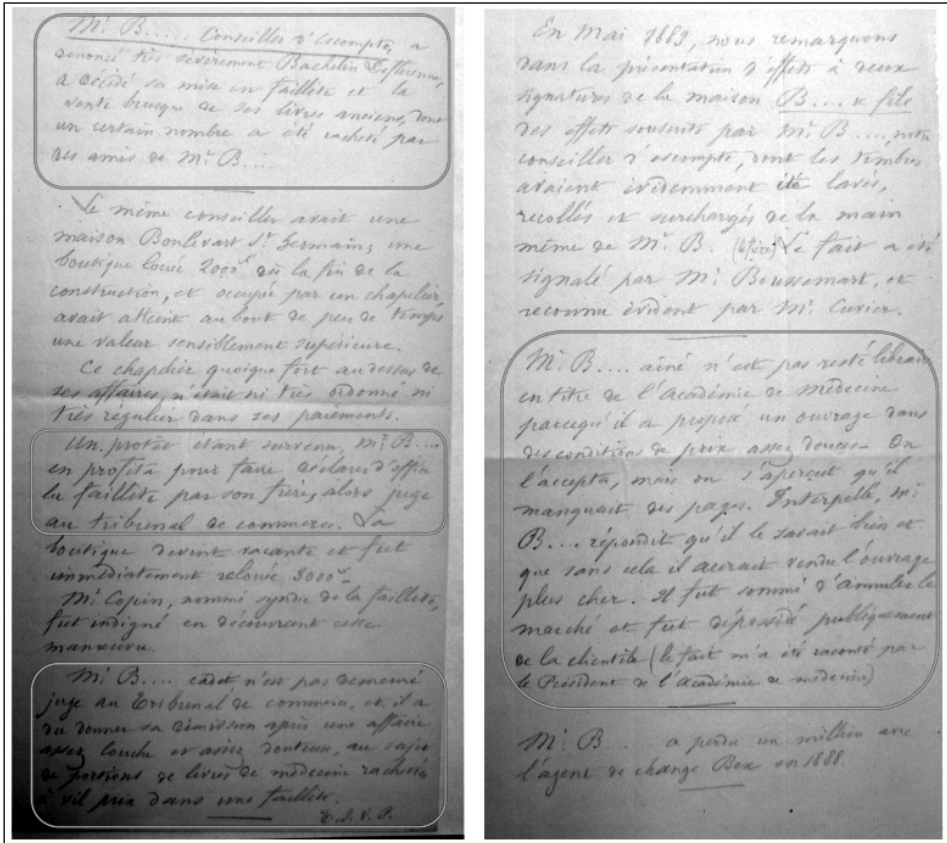 Mr. B..... Conseiller d'escompte, a
dénoncé très sévèrement Bachelin Deflorenne,
a décidé sa mise en faillite et la
vente brusque de ses livres anciens, dont
un certain nombre a été racheté par
des amis de Mr. B....
Le même conseiller avait une
maison Boulevart St. Germain; une
boutique louée 2000f dès la fin de la
construction, et occupée par un chapelier,
avait atteint au bout de peu de temps
une valeur sensiblement supérieure.
Ce chapelier quoique fort au dessus de
ses affaires, n'était ni très ordonné ni
très régulier dans ses paiements.
Un protêt étant survenu, Mr. B....
en profita pour faire déclarer d'office
la faillite par son frère, alors juge
au tribunal de commerce. La
boutique devint vacante et fut
immédiatement relouée 3000f
Mr. Copin, nommé syndic de la faillite,
fut indigné en découvrant cette
manœuvre.
Mr. B.... cadet n'est pas demeuré
juge au Tribunal de commerce, et il a
du donner sa démission après une affaire
assez louche et assez douteuse, au sujet
de portions de livres de médecine rachetés
à vil prix dans une faillite.
T.S.V.P.
En Mai 1889, nous remarquons
dans la présentation d'effets à deux
signatures de la maison B.... & fils
des effets souscrits par Mr. B...., notre
conseiller d'escompte, dont les timbres
avaient évidemment été lavés,
recollés et surchargés de la main
même de Mr. B. (le père) Le fait a été
signalé par Mr. Boussemart, et
reconnu évident par Mr. Cuvier.
Mr. B.... aîné n'est pas resté libraire
en titre de l'Académie de Médecine
parcequ'il a proposé un ouvrage dans
des conditions de prix assez douces. On
l'accepta, mais on s'aperçut qu'il
manquait des pages. Interpellé, Mr.
B.... répondit qu'il le savait bien et
que sans cela il aurait vendu l'ouvrage
plus cher. Il fut sommé d'annuler le
marché et fut dépossédé publiquement
de la clientèle (le fait m'a été raconté par
le Président de l'Académie de médecine)
Mr. B..... a perdu un million avec
l'agent de change Bex en 1888.